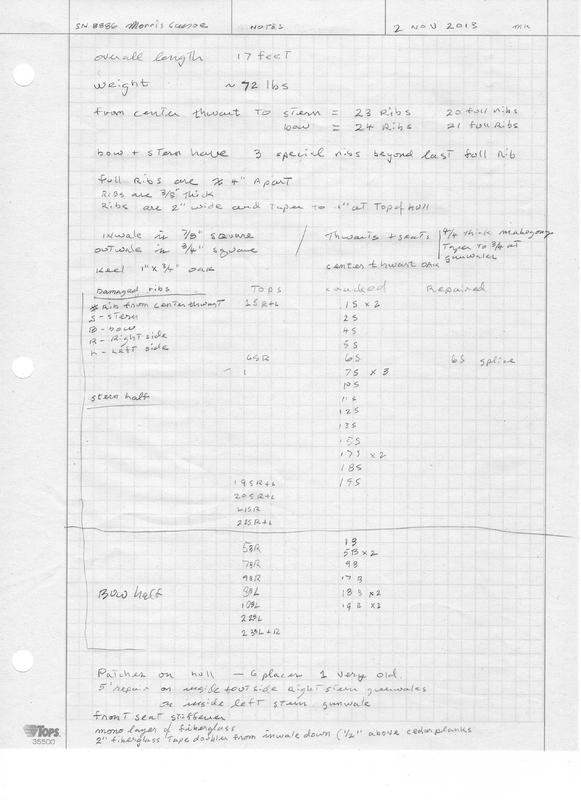 SN 8886 Morris Canoe NOTES 2 NOV 2013 MK
overall length 17 feet
weight ~ 72 lbs
from center thwart to stern = 23 Ribs 20 full ribs
bow = 24 Ribs 21 full Ribs
bow + stern have 3 special ribs beyond last full rib
full Ribs are ≈ 4" Apart
Ribs are 3/8" thick
Ribs are 2" wide and Taper to 1" at Top of hull
inwale is 7/8" square / Thwarts + seats 4/4 thick mahogany
outwale is 3/4" square Taper To 3/4 at
gunwales
keel 1" x 3/4" oak center thwart oak
Damaged ribs TOPS cracked Repaired
# Rib from center thwart 1S R+L 1S x 2
S - stern 2S
B - bow 4S
R - Right side 5S
L - Left side
6SR 6S 6S splice
7S x 3
10S
stern half 11S
12S
13S
15S
17S x2
18S
19S R+L 19S
20S R+L
21SR
22S R+L
1B
5BR 5B x2
7BR 9B
9BR 17B
Bow half 18B x2
19B x2
22BL
23BL + R
Patches on hull - 6 places 1 very old.
5' repair on inside + outside Right stern gunwales
inside left stern gunwale
front seat stiffener
mono layer of fiberglass
2" fiberglass Tape doubler from inwale down (1/2" above cedar planks
TOPS
35500